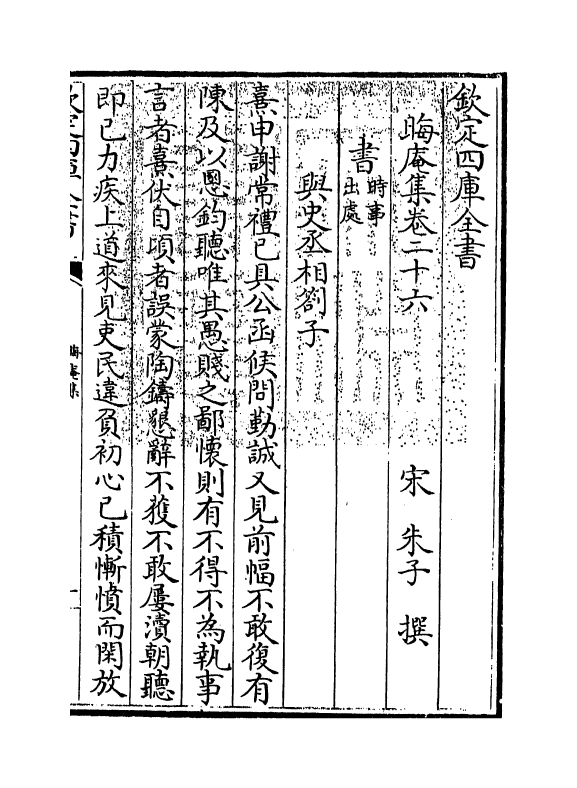 欽定四庫全書
晦庵集卷二十六　宋　朱子　撰
書時事出處
與史丞相劄子
熹申謝常禮已具公函候問勤誠又見前幅不敢復有
陳及以恩鈞聽唯其愚賤之鄙懷則有不得不為執事
言者熹伏自頃者誤蒙陶鑄懇辭不獲不敢屢瀆朝聽
即已力疾上道來見吏民違負初心已積慚憤而閑放
欽定四庫全書
晦庵集